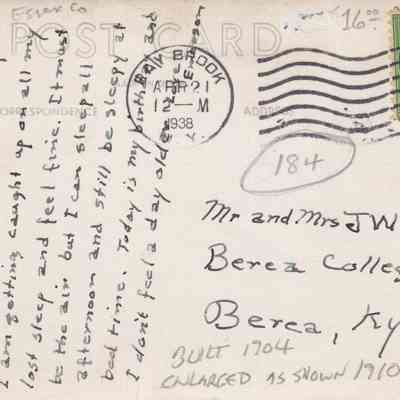 Essex Co
16.00
POST CARD
CORRESPONDENCE
ADDRESS
BROOK
APR 21
12 — M
1938
N. Y.
184
I am getting caught up on all my
lost sleep and feel fine. It must
be the air but I can sleep all
afternoon and still be sleepy at
bed time. Today is my birthday and
I don't feel a day older.
Mr and Mrs J W
Berea Colleg
Berea, Ky
BUILT 1904
ENLARGED AS SHOWN 1910